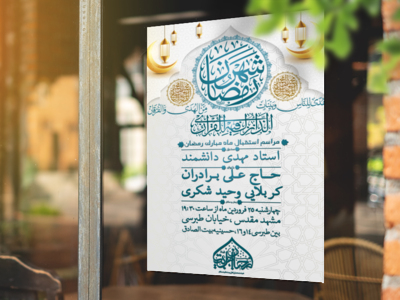 شهر رمضان
الذی انزل فیه القرآن
هدی للناس
وبینات
من الهدی
والفرقان
مراسم استقبال ماه مبارک رمضان
استاد مهدی دانشمند
حاج علی برادران
کربلایی وحید شکری
چهارشنبه ۲۵ فروردین ماه از ساعت ۱۹:۳۰
مشهد مقدس ، خیابان طبرسی
بین طبرسی ۱۴ و ۱۶ ، حسینیه بیت الصادق